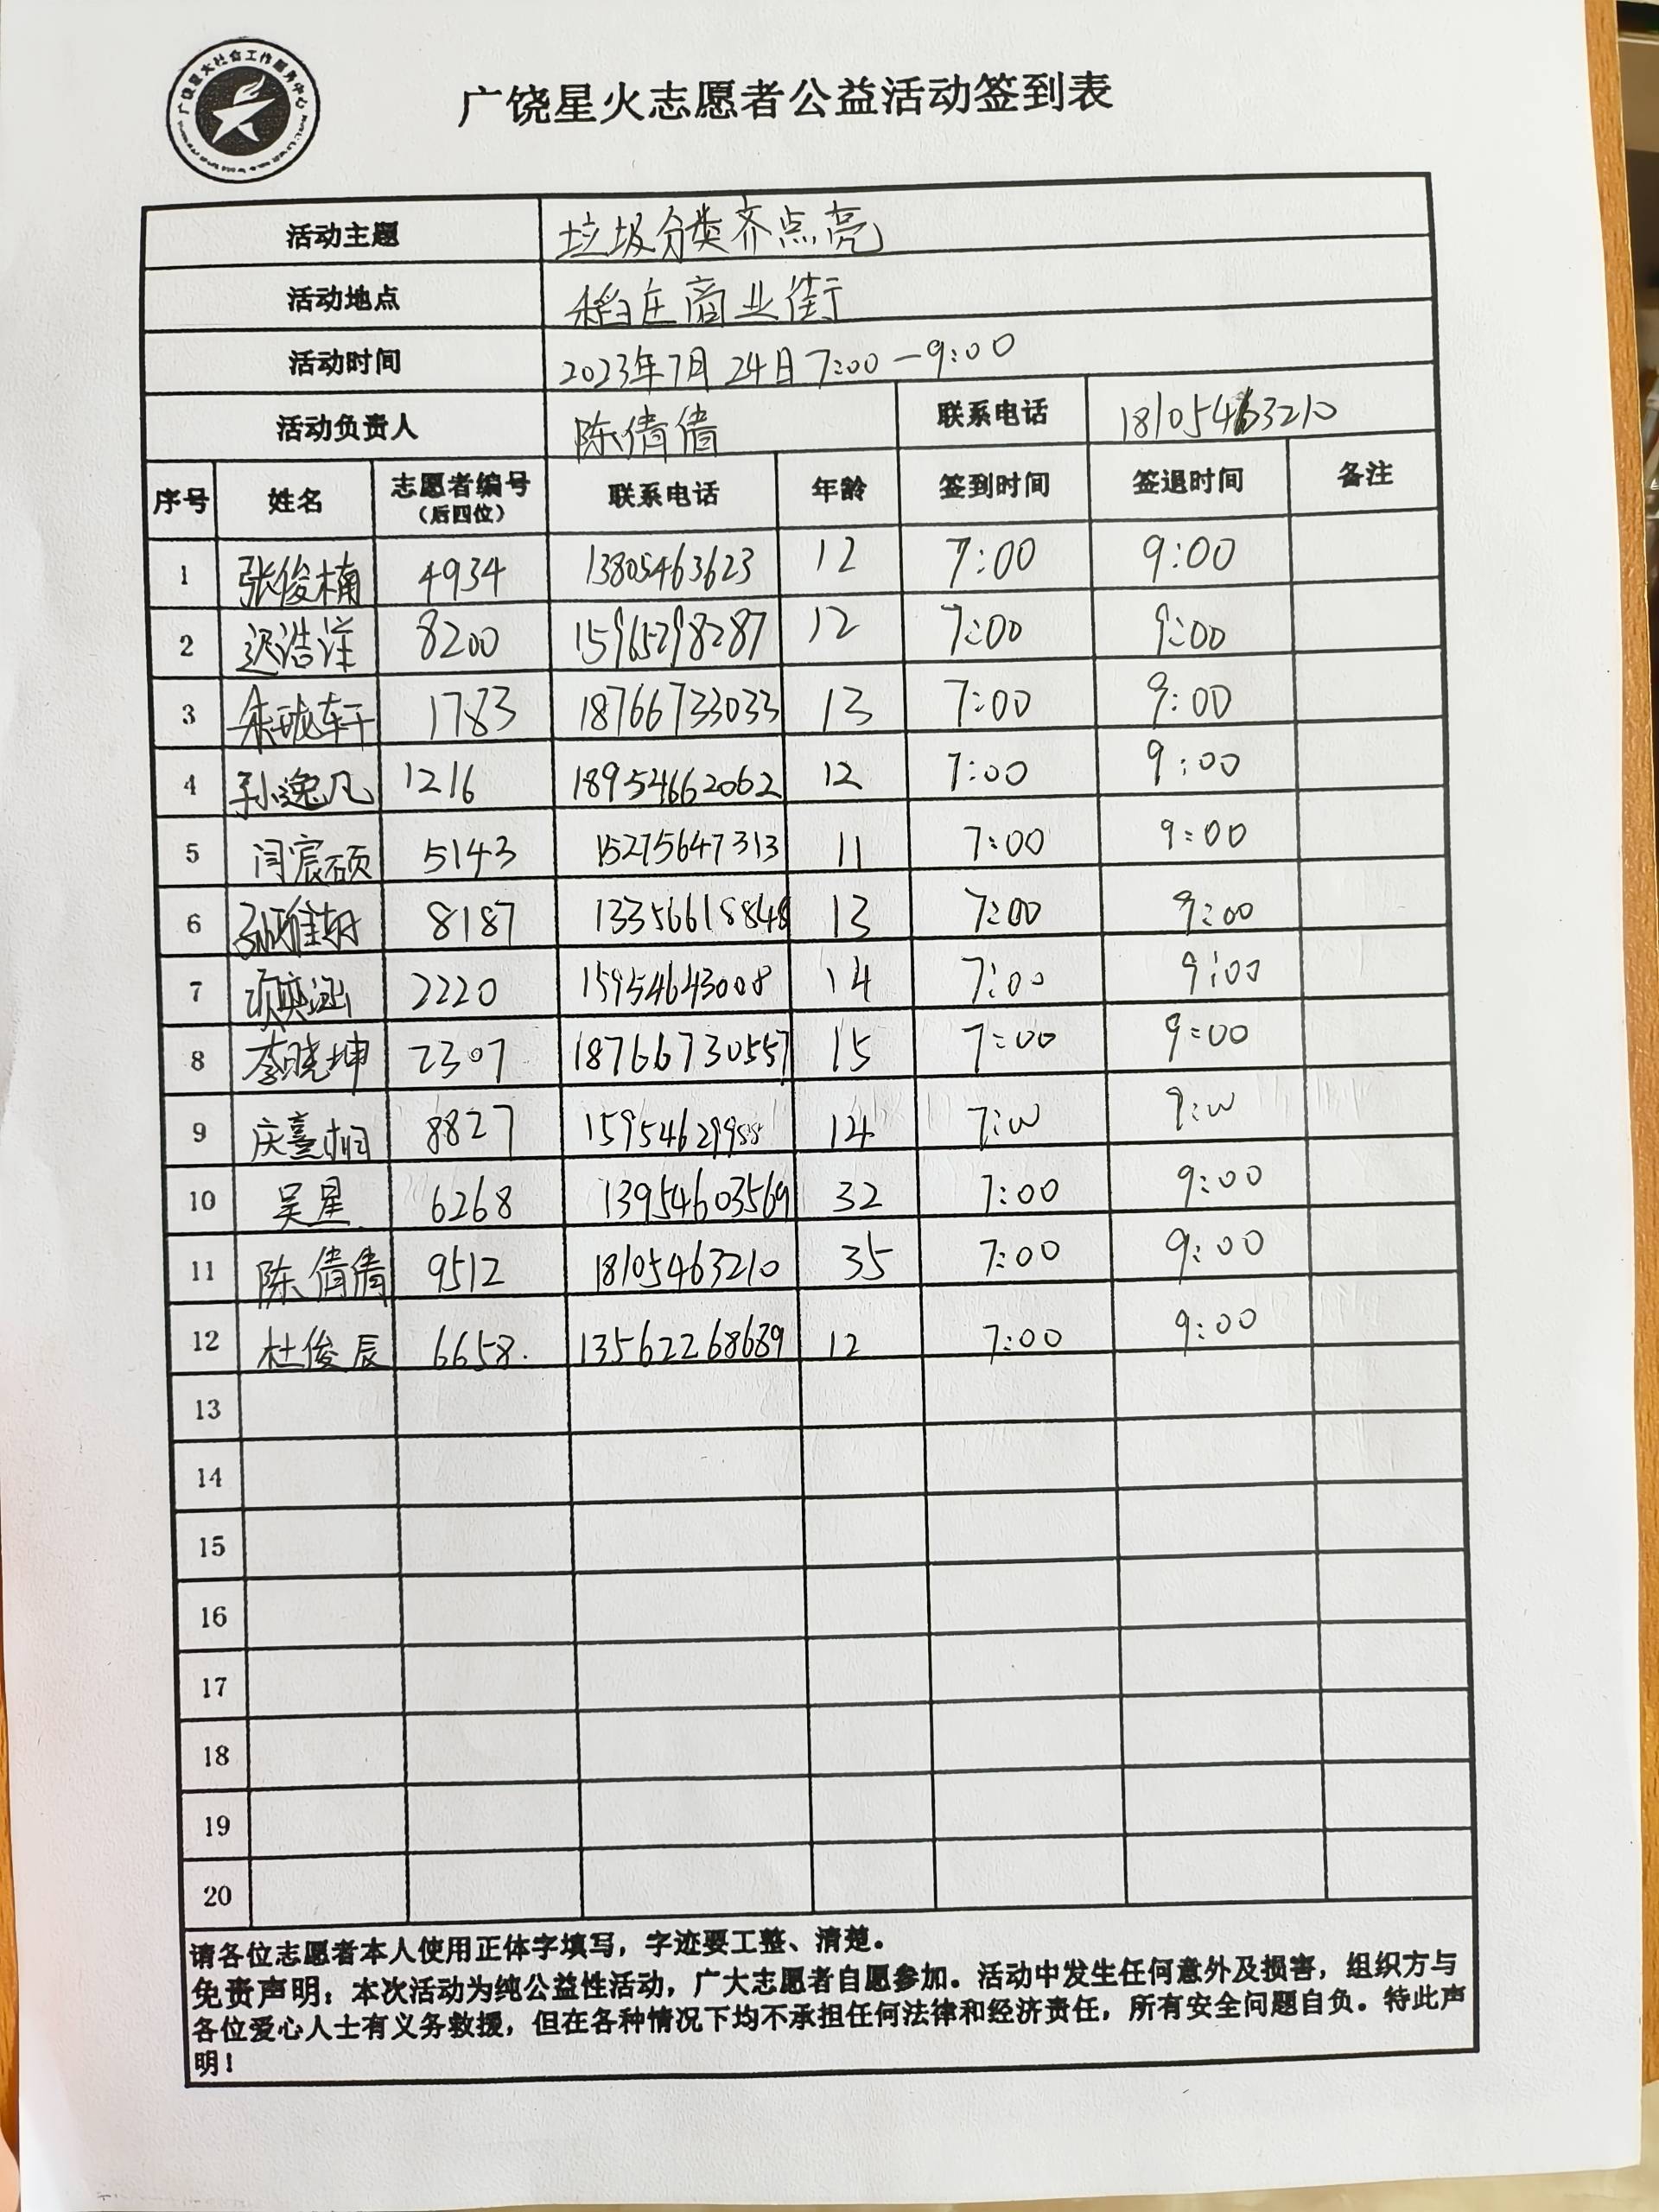 广饶星火社会工作服务中心
广饶星火志愿者公益活动签到表
活动主题 垃圾分类齐点亮
活动地点 稻庄商业街
活动时间 2023年7月24日7:00-9:00
活动负责人 陈倩倩 联系电话 18105463210
序号 姓名 志愿者编号（后四位） 联系电话 年龄 签到时间 签退时间 备注
1 张俊楠 4934 13805463623 12 7:00 9:00
2 迟浩洋 8200 15965298287 12 7:00 9:00
3 18766733033 1783 13 7:00 9:00
4 孙逸凡 1216 18954662062 12 7:00 9:00
5 闫宸硕 5143 15275647313 11 7:00 9:00
6 8187 13356618848 13 7:00 9:00
7 2220 15954643008 14 7:00 9:00
8 李晓坤 2307 18766730557 15 7:00 9:00
9 8827 15954629988 14 7:00 9:00
10 吴星 6268 13954603569 32 7:00 9:00
11 陈倩倩 9512 18105463210 35 7:00 9:00
12 杜俊辰 6658. 13562268689 12 7:00 9:00
13
14
15
16
17
18
19
20
请各位志愿者本人使用正体字填写，字迹要工整、清楚。
免责声明：本次活动为纯公益性活动，广大志愿者自愿参加。活动中发生任何意外及损害，组织方与
各位爱心人士有义务救援，但在各种情况下均不承担任何法律和经济责任，所有安全问题自负。特此声
明！